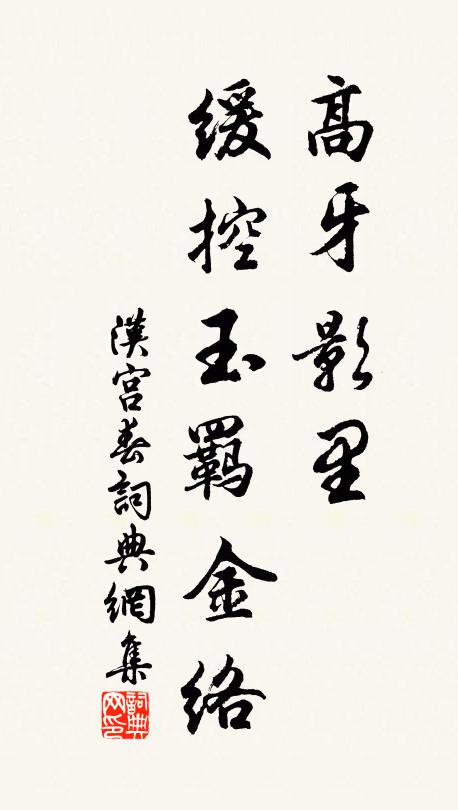 高牙影里
缓控玉羁金络
漢宫春詞典網集
詞典网印